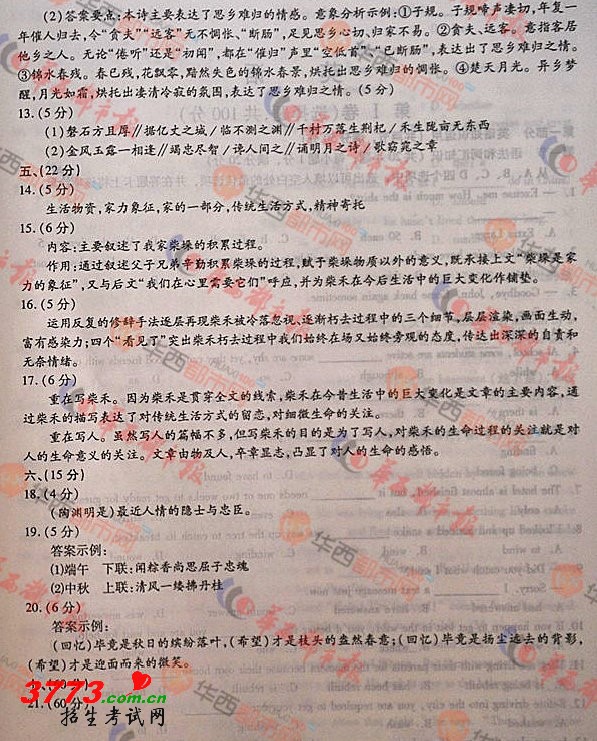 (2)答案要点:本诗主要表达了思乡难归的情感。意象分析示例:①子规。子规啼声凄切,年复一
年催人归去,令“贪夫”“远客”无不惆怅、“断肠”,足见思乡心切、归家不易。②贪夫、远客。意指客居
他乡之人。无论“倦听”还是“初闻”,都在“催归”声里“空低首”、“已断肠”,表达出了思乡难归之情。
③锦水春残。春已残,花飘零,黯然失色的锦水春景,烘托出思乡难归的惆怅。④楚天月光。异乡梦
醒,月光如霜,烘托出凄清冷寂的氛围,表达了思乡难归之情。(5分)
13.(5分)
(1)磐石方且厚∥据亿丈之城∥临不测之渊∥千村万落生荆杞∥禾生陇亩无东西
(2)金风玉露一相逢∥竭忠尽智∥谗人间之∥诵明月之诗∥歌窈窕之章
五、(22分)
14.(5分)
生活物资,家力象征,家的一部分,传统生活方式,精神寄托
15.(6分)
内容:主要叙述了我家柴垛的积累过程。
作用:通过叙述父子兄弟辛勤积累柴垛的过程,赋予柴垛物质以外的意义,既承接上文“柴垛是家
力的象征”,又与后文“我们在心里需要它们”呼应,并为柴禾在今后生活中的巨大变化作铺垫。
16.(5分)
运用反复的修辞手法逐层再现柴禾被冷落忽视、逐渐朽去过程中的三个细节,层层渲染,画面生动,
富有感染力;四个“看见了”突出柴禾朽去过程中我们始终在场又始终旁观的态度,传达出深深的自责和
无奈情绪。
17.(6分)
重在写柴禾。因为柴禾是贯穿全文的线索,柴禾在今昔生活中的巨大变化是文章的主要内容,通
过柴禾的描写表达了对传统生活方式的留恋,对细微生命的关注。
重在写人。虽然写人的篇幅不多,但写柴禾的目的是为了写人,对柴禾的生命过程的关注就是对
人的生命意义的关注。文章由物及人,卒章显志,凸显了对人的生命的感悟。
六、(15分)
18.(4分)
(陶渊明是)最近人情的隐士与忠臣。
19.(5分)
答案示例:
(1)端午 下联:闻粽香尚思屈子忠魂
(2)中秋 上联:清风一缕拂丹桂
20.(6分)
答案示例:
(回忆)毕竟是秋日的缤纷落叶,(希望)才是枝头的盎然春意;(回忆)毕竟是扬尘远去的背影,
(希望)才是迎面而来的微笑。
21.(60分)
3773.com.cn
招生考试网
华西都市报